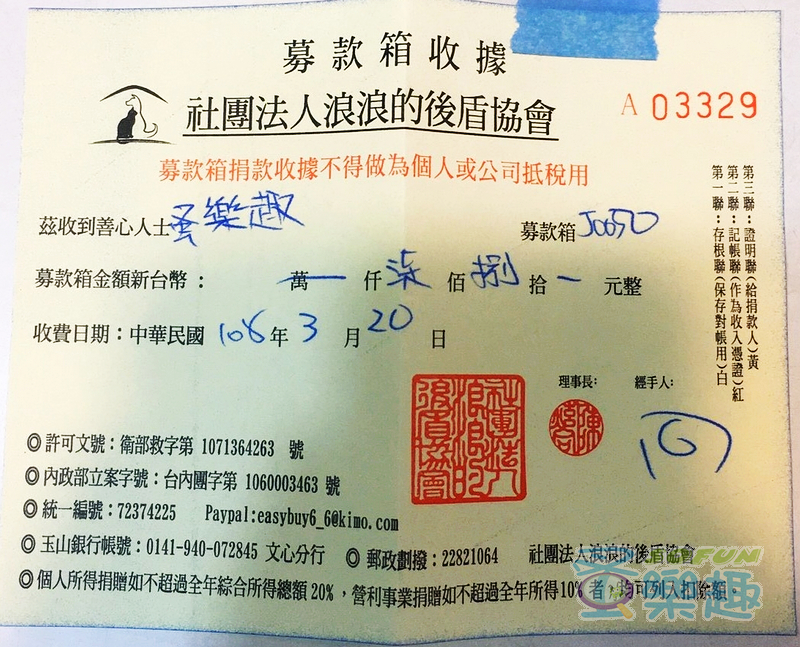 募款箱收據
社團法人浪浪的後盾協會
A 03329
募款箱捐款收據不得做為個人或公司抵稅用
茲收到善心人士蛋樂趣
募款箱J0050
募款箱金額新台幣：一萬一仟柒佰捌拾一元整
收費日期：中華民國108年3月20日
第三聯：證明聯（給捐款人）黃
第二聯：記帳聯（作為收入憑證）紅
第一聯：存根聯（保存對帳用）白
理事長：
經手人：
社團法人浪浪的後盾協會
◎許可文號：衛部救字第 1071364263 號
◎內政部立案字號：台內團字第 1060003463 號
◎統一編號：72374225 Paypal:easybuy6_6@kimo.com
◎玉山銀行帳號：0141-940-072845 文心分行 ◎郵政劃撥：22821064 社團法人浪浪的後盾協會
◎個人所得捐贈如不超過全年綜合所得總額20%，營利事業捐贈如不超過全年所得10%者，均可列入扣除額。
FUN
樂趣